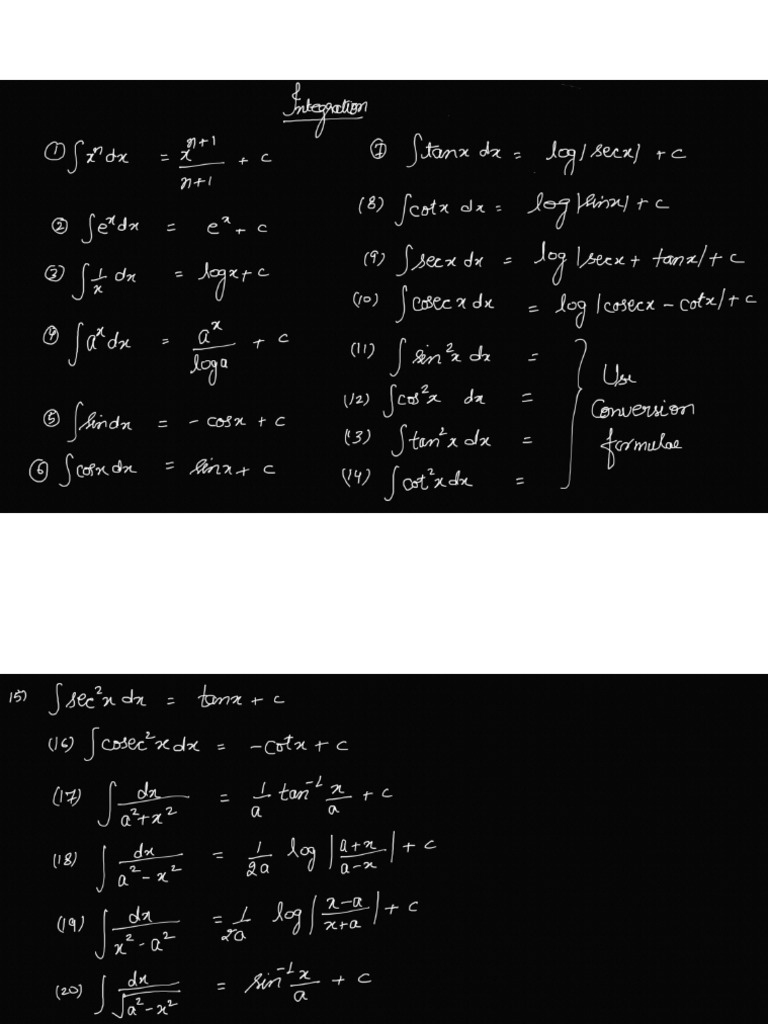 Integration
① ∫xⁿ dx = xⁿ⁺¹/n+1 + c
② ∫eˣ dx = eˣ + c
③ ∫1/x dx = logx + c
④ ∫aˣ dx = aˣ/loga + c
⑤ ∫sindx = - cosx + c
⑥ ∫cosx dx = sinx + c
⑦ ∫tanx dx = log|secx| + c
(8) ∫cotx dx = log|sinx| + c
(9) ∫secx dx = log|secx + tanx| + c
(10) ∫cosecx dx = log|cosecx - cotx| + c
(11) ∫sin²x dx =
(12) ∫cos²x dx =
(13) ∫tan²x dx =
(14) ∫cot²x dx =
Use
Conversion
formulae
15) ∫sec²x dx = tanx + c
(16) ∫cosec²x dx = -cotx + c
(17) ∫dx/a²+x² = 1/a tan⁻¹ x/a + c
(18) ∫dx/a²-x² = 1/2a log|a+x/a-x| + c
(19) ∫dx/x²-a² = 1/2a log|x-a/x+a| + c
(20) ∫dx/√a²-x² = sin⁻¹ x/a + c